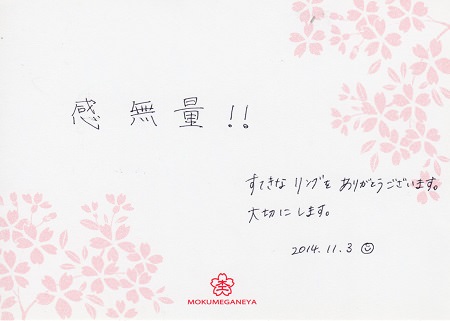 感無量!!
すてきなリングをありがとうございます。
大切にします。
2014.11.3
MOKUMEGANEYA